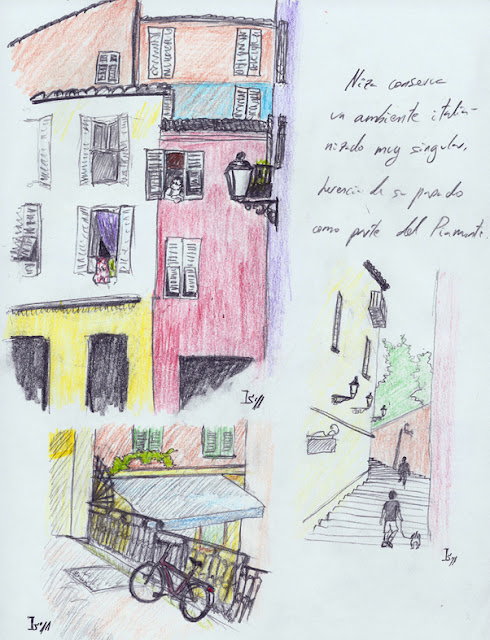 Niza conserva
un ambiente italia-
nizado muy singular,
herencia de su pasado
como parte del Piamonte.